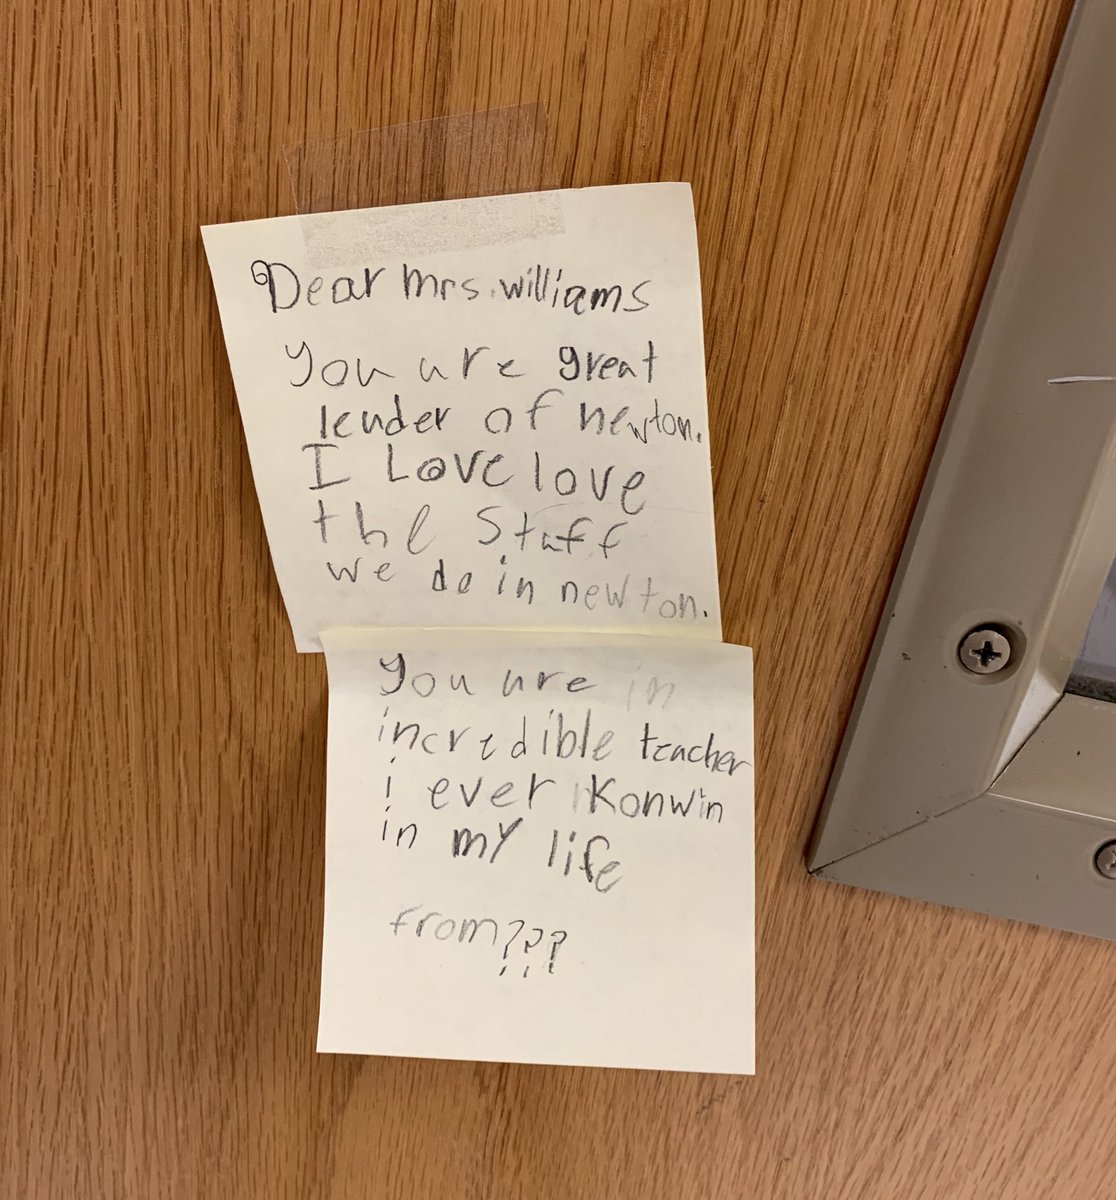 Dear Mrs. williams
You are great
leader of newton.
I Love love
the Staff
we do in newton.
You are in
incredible teacher
i ever Konwin
in my life
from???